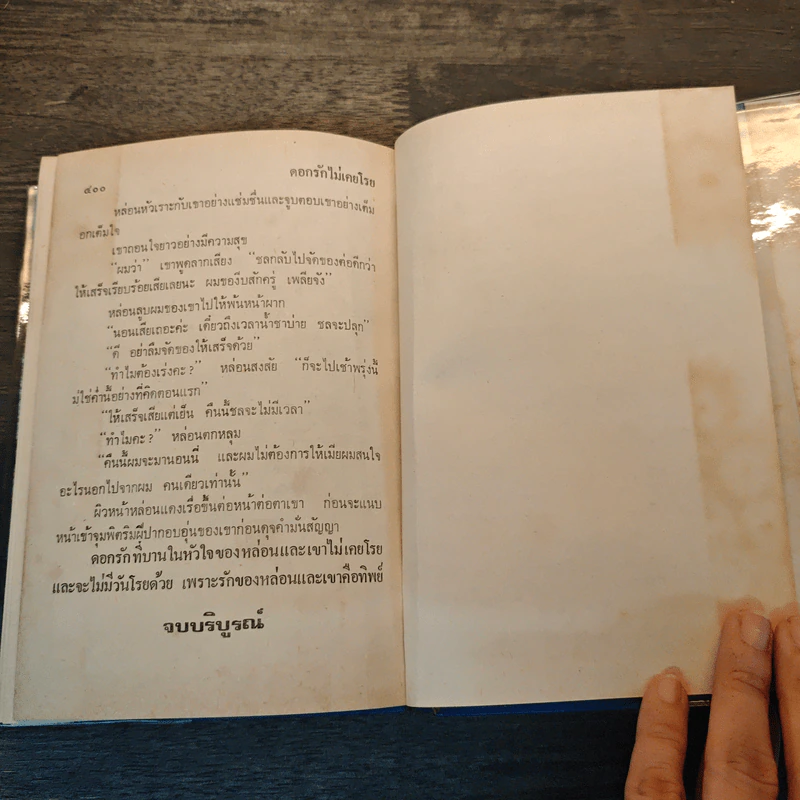 ๔๐๐ ดอกรักไม่เคยโรย
หล่อนหัวเราะกับเขาอย่างแช่มชื่นและจูบตอบเขาอย่างเต็ม
อกเต็มใจ
เขาถอนใจยาวอย่างมีความสุข
“ผมว่า” เขาพูดลากเสียง “ชลกลับไปจัดของต่อดีกว่า
ให้เสร็จเรียบร้อยเสียเลยนะ ผมของีบสักครู่ เพลียจัง”
หล่อนลูบผมของเขาไปให้พ้นหน้าผาก
“นอนเสียเถอะค่ะ เดี๋ยวถึงเวลาน้ำชาบ่าย ชลจะปลุก”
“ดี อย่าลืมจัดของให้เสร็จด้วย”
“ทำไมต้องเร่งคะ?” หล่อนสงสัย “ก็จะไปเช้าพรุ่งนี้
ไม่ใช่ค่ำนี้อย่างที่คิดตอนแรก”
“ให้เสร็จเสียแต่เย็น คืนนี้ชลจะไม่มีเวลา”
“ทำไมคะ?” หล่อนตกหลุม
“คืนนี้ผมจะมานอนนี่ และผมไม่ต้องการให้เมียผมสนใจ
อะไรนอกไปจากผม คนเดียวเท่านั้น”
ผิวหน้าหล่อนแดงเรื่อขึ้นต่อหน้าต่อตาเขา ก่อนจะแนบ
หน้าเข้าจุมพิตริมฝีปากอบอุ่นของเขาก่อนดุจคำมั่นสัญญา
ดอกรักที่บานในหัวใจของหล่อนและเขาไม่เคยโรย
และจะไม่มีวันโรยด้วย เพราะรักของหล่อนและเขาคือทิพย์
จบบริบูรณ์